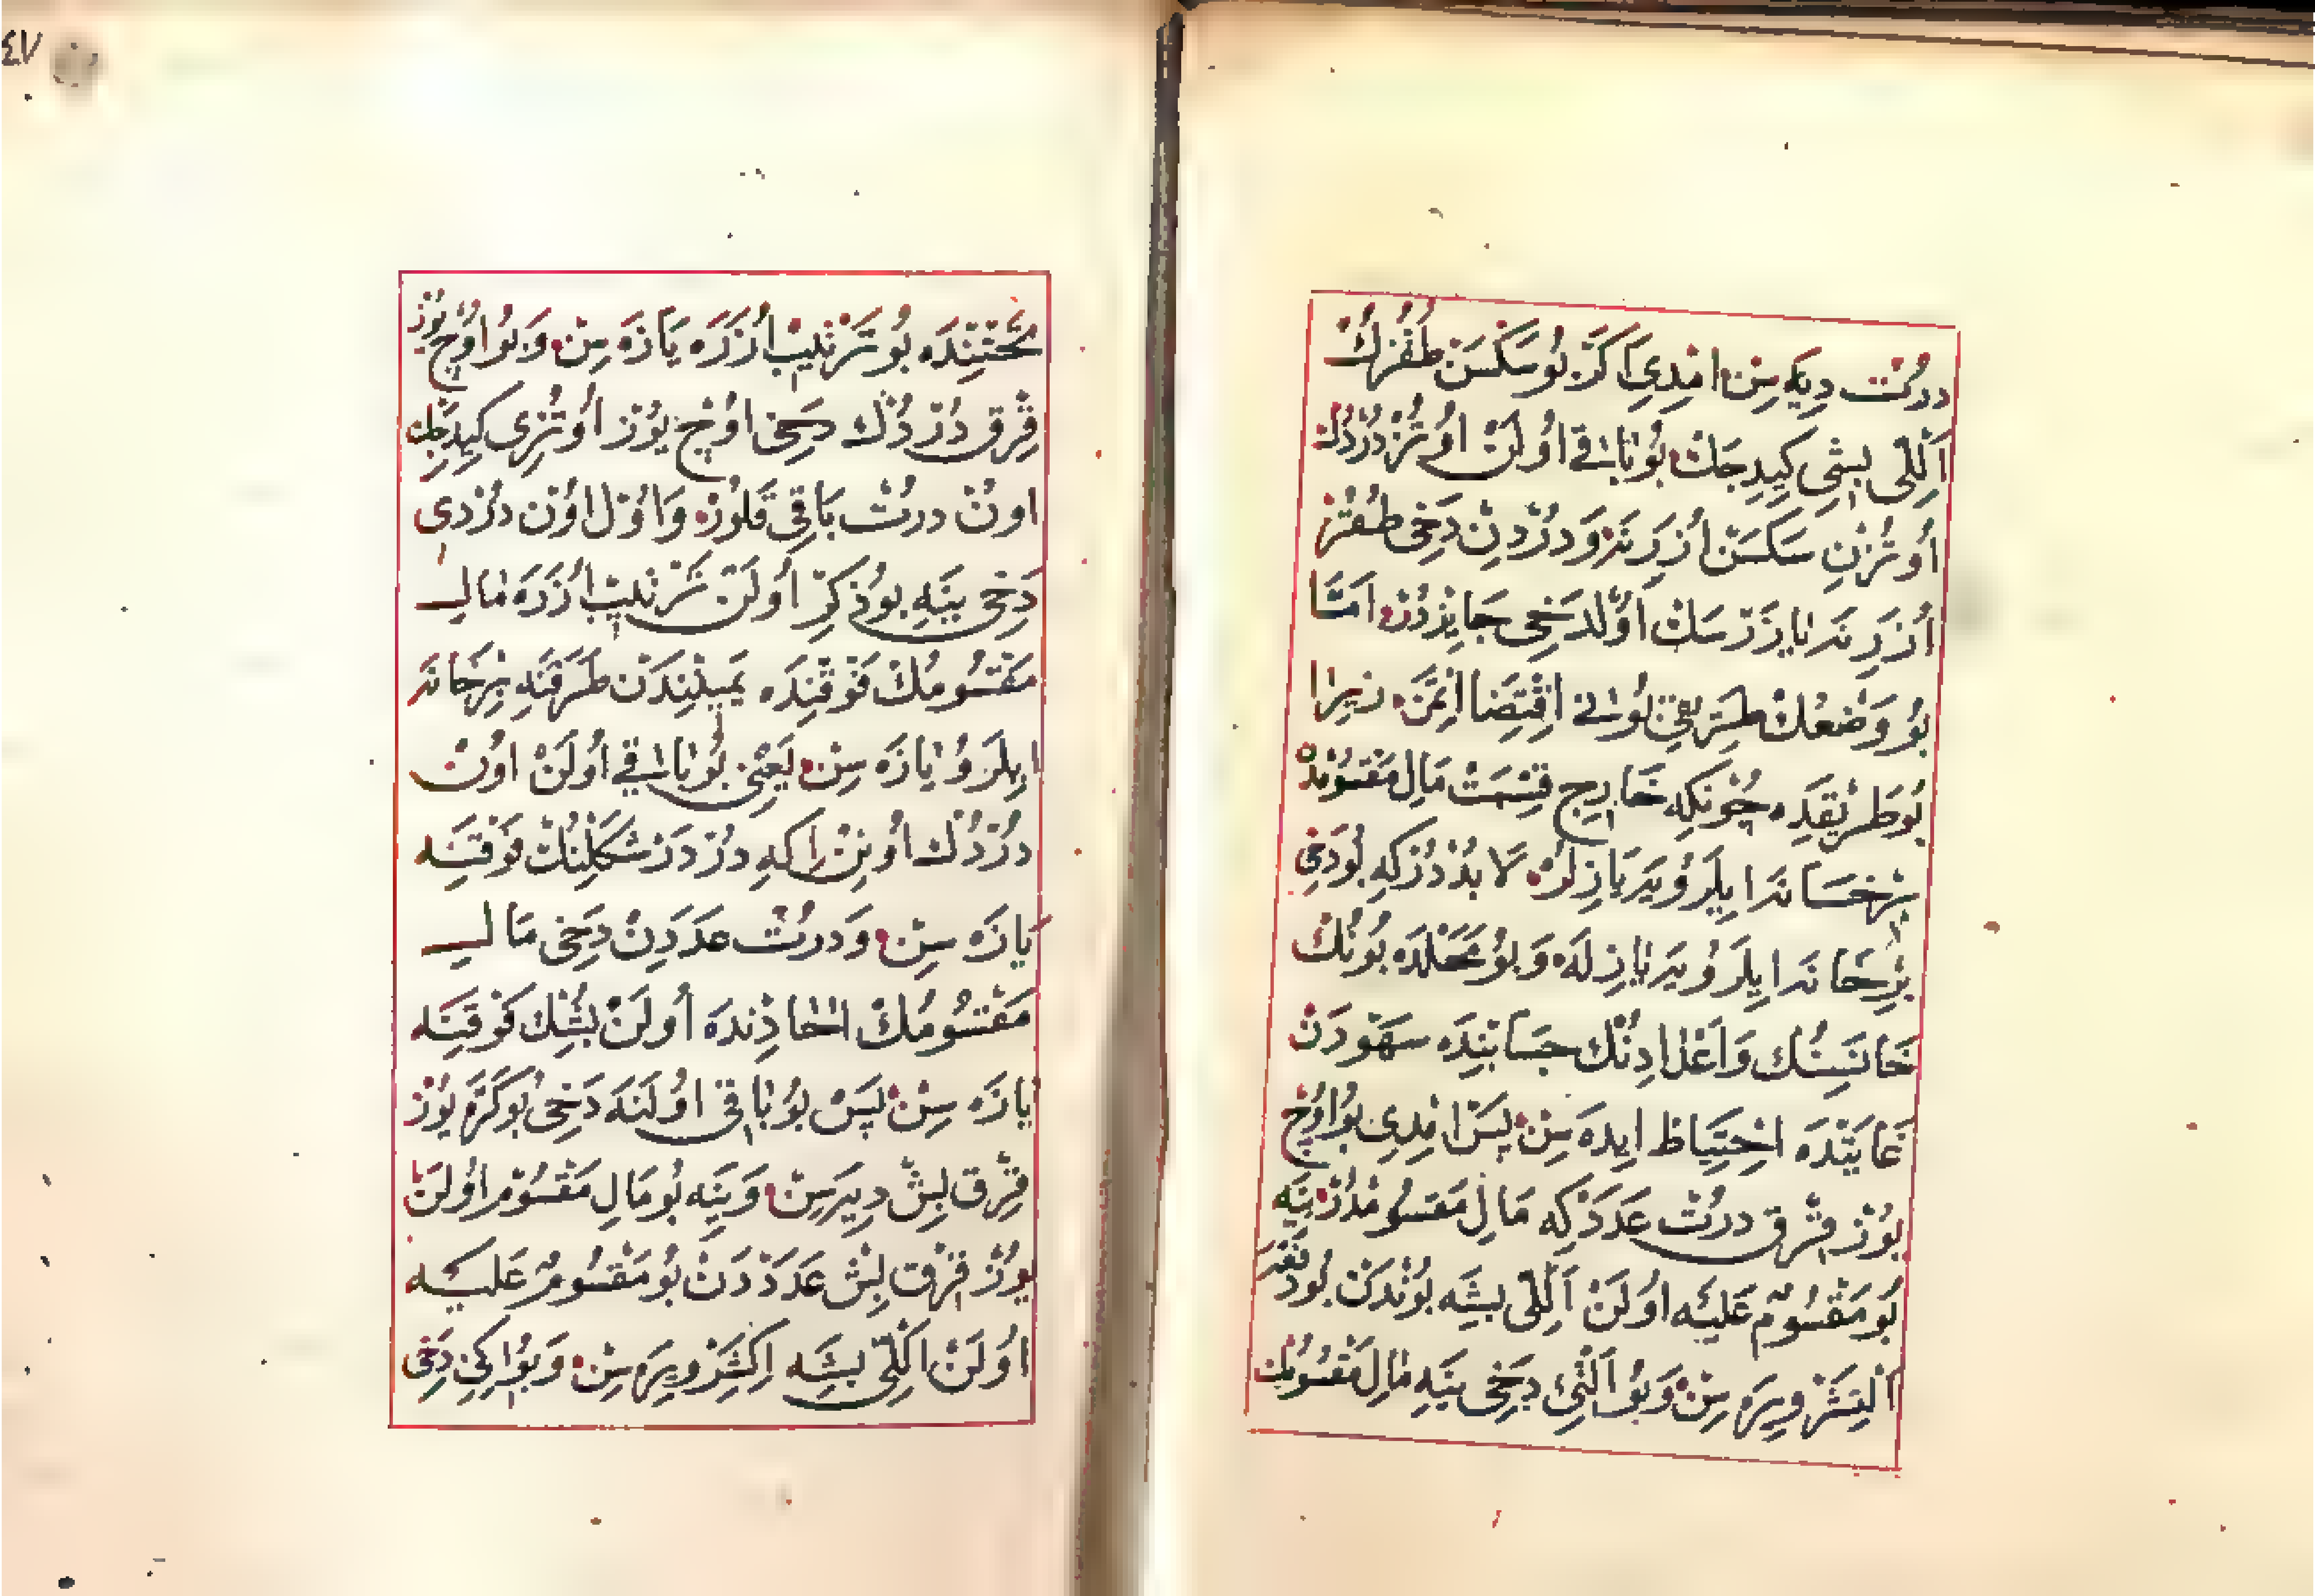 دُرْت دِيَه سِن امْدِي اَكَرْ بُو سَكْسَن طُقُزُكْ
اَللِّى بِشِى كِيدِجَكْ بُو بَاقِى اُولَنْ اُوتُز دُرْدُكْ
اُوتُزْنِ سَكْسَن اُزَرِنَه وَ دُرْدِنْ دَخِى طُقُز
اُزَرِنَه يَازَرْسَكْ اَوَّلْدَخِى جَايِزْدُرْ اَمَّا
بُو وَضْعُكْ طَرِيقِى بُونِى اِقْتِضَا اِتْمَز زِيرَا
بُو طَرِيقَدَه چُونكِه خَارِجِ قِسْمَتْ مَالِ مَقْسُومْدَنْ
بِرْ خَانَه اِيلَرُو يَه يَازِلُرْ لَا بُدْدُرْ كِه بُودَخِى
بِرْ خَانَه اِيلَرُو يَه يَازِلَه وَ بُو مَحَلْدَه بُونُكْ
خَانَسِنُكْ وَ اَعْدَادِنُكْ حِسَابِنْدَه سَهْودَنْ
غَايَتْدَه اِحْتِيَاط ايدَه سِن پَسْ اِمْدِى بُو اُوچ
يُوز قِرْق دُرْت عَدَدْ كِه مَالِ مَقْسُومْدُرْ يِنَه
بُو مَقْسُومٌ عَلَيْه اُولَنْ اَللِّى بِشَه بُونْدَنْ بُودَفْعَه
اَلْتِشَرْ وِيرَه سِنْ وَ بُو اَلْتِيِى دَخِى يِنَه مَالِ مَقْسُومُكْ
٤٧
تَحْتِنْدَه بُو تَرْتِيبْ اُزَرَه يَازَه سِن وَ بُو اُوچ يُوز
قِرْق دُرْدُكْ دَخِى اُوچ يُوز اُوتُزِى كِيدِجَكْ
اون دُرْتْ بَاقِى قَلُورْ وَ اوُلْ اوُن دُرْدِى
دَخِى يِنَه بُو ذِكْرْ اُولَنْ تَرْتِيبْ اُزَرَه مَالِ
مَقْسُومُكْ فَوْقِنْدَه يَمِينِنْدَن طَرَفَنَه بِرْ خَانَه
اِيلَرُو يَازَه سِنْ يَعْنِى بُو بَاقِى اُولَنْ اوُن
دُرْدُكْ اُونِنْ اِكِه دُرْدَرْ شَكْلِنُكْ فَوْقِنَه
يَازَه سِنْ وَ دُرْت عَدَدِنْ دَخِى مَالِ
مَقْسُومُكْ اٰحَاذِنده اُولَنْ بِشِكْ فَوْقِنَه
يَازَه سِنْ پَسْ بُو بَاقِى اوُلَنَه دَخِى بُو كَرَّه يُوز
قِرْق بِشْ دِيرَسِنْ وَ يِنَه بُو مَالِ مَقْسُوْم اُولَنْ
يُوزْ قِرْق بِشْ عَدَدْدَنْ بُو مَقْسُومٌ عَلَيْه
اوُلَنْ اَللِّى بِشَه اِكِشَرْ وِيرَه سِنْ وَ بُو اِكِيِى دَخِى